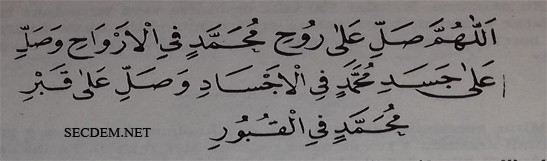 اَللّٰهُمَّ صَلِّ عَلٰى رُوحِ مُحَمَّدٍ فِي الْاَرْوَاحِ وَصَلِّ
عَلٰى جَسَدِ مُحَمَّدٍ فِي الْاَجْسَادِ وَصَلِّ عَلٰى قَبْرِ
مُحَمَّدٍ فِي الْقُبُورِ
SECDEM.NET